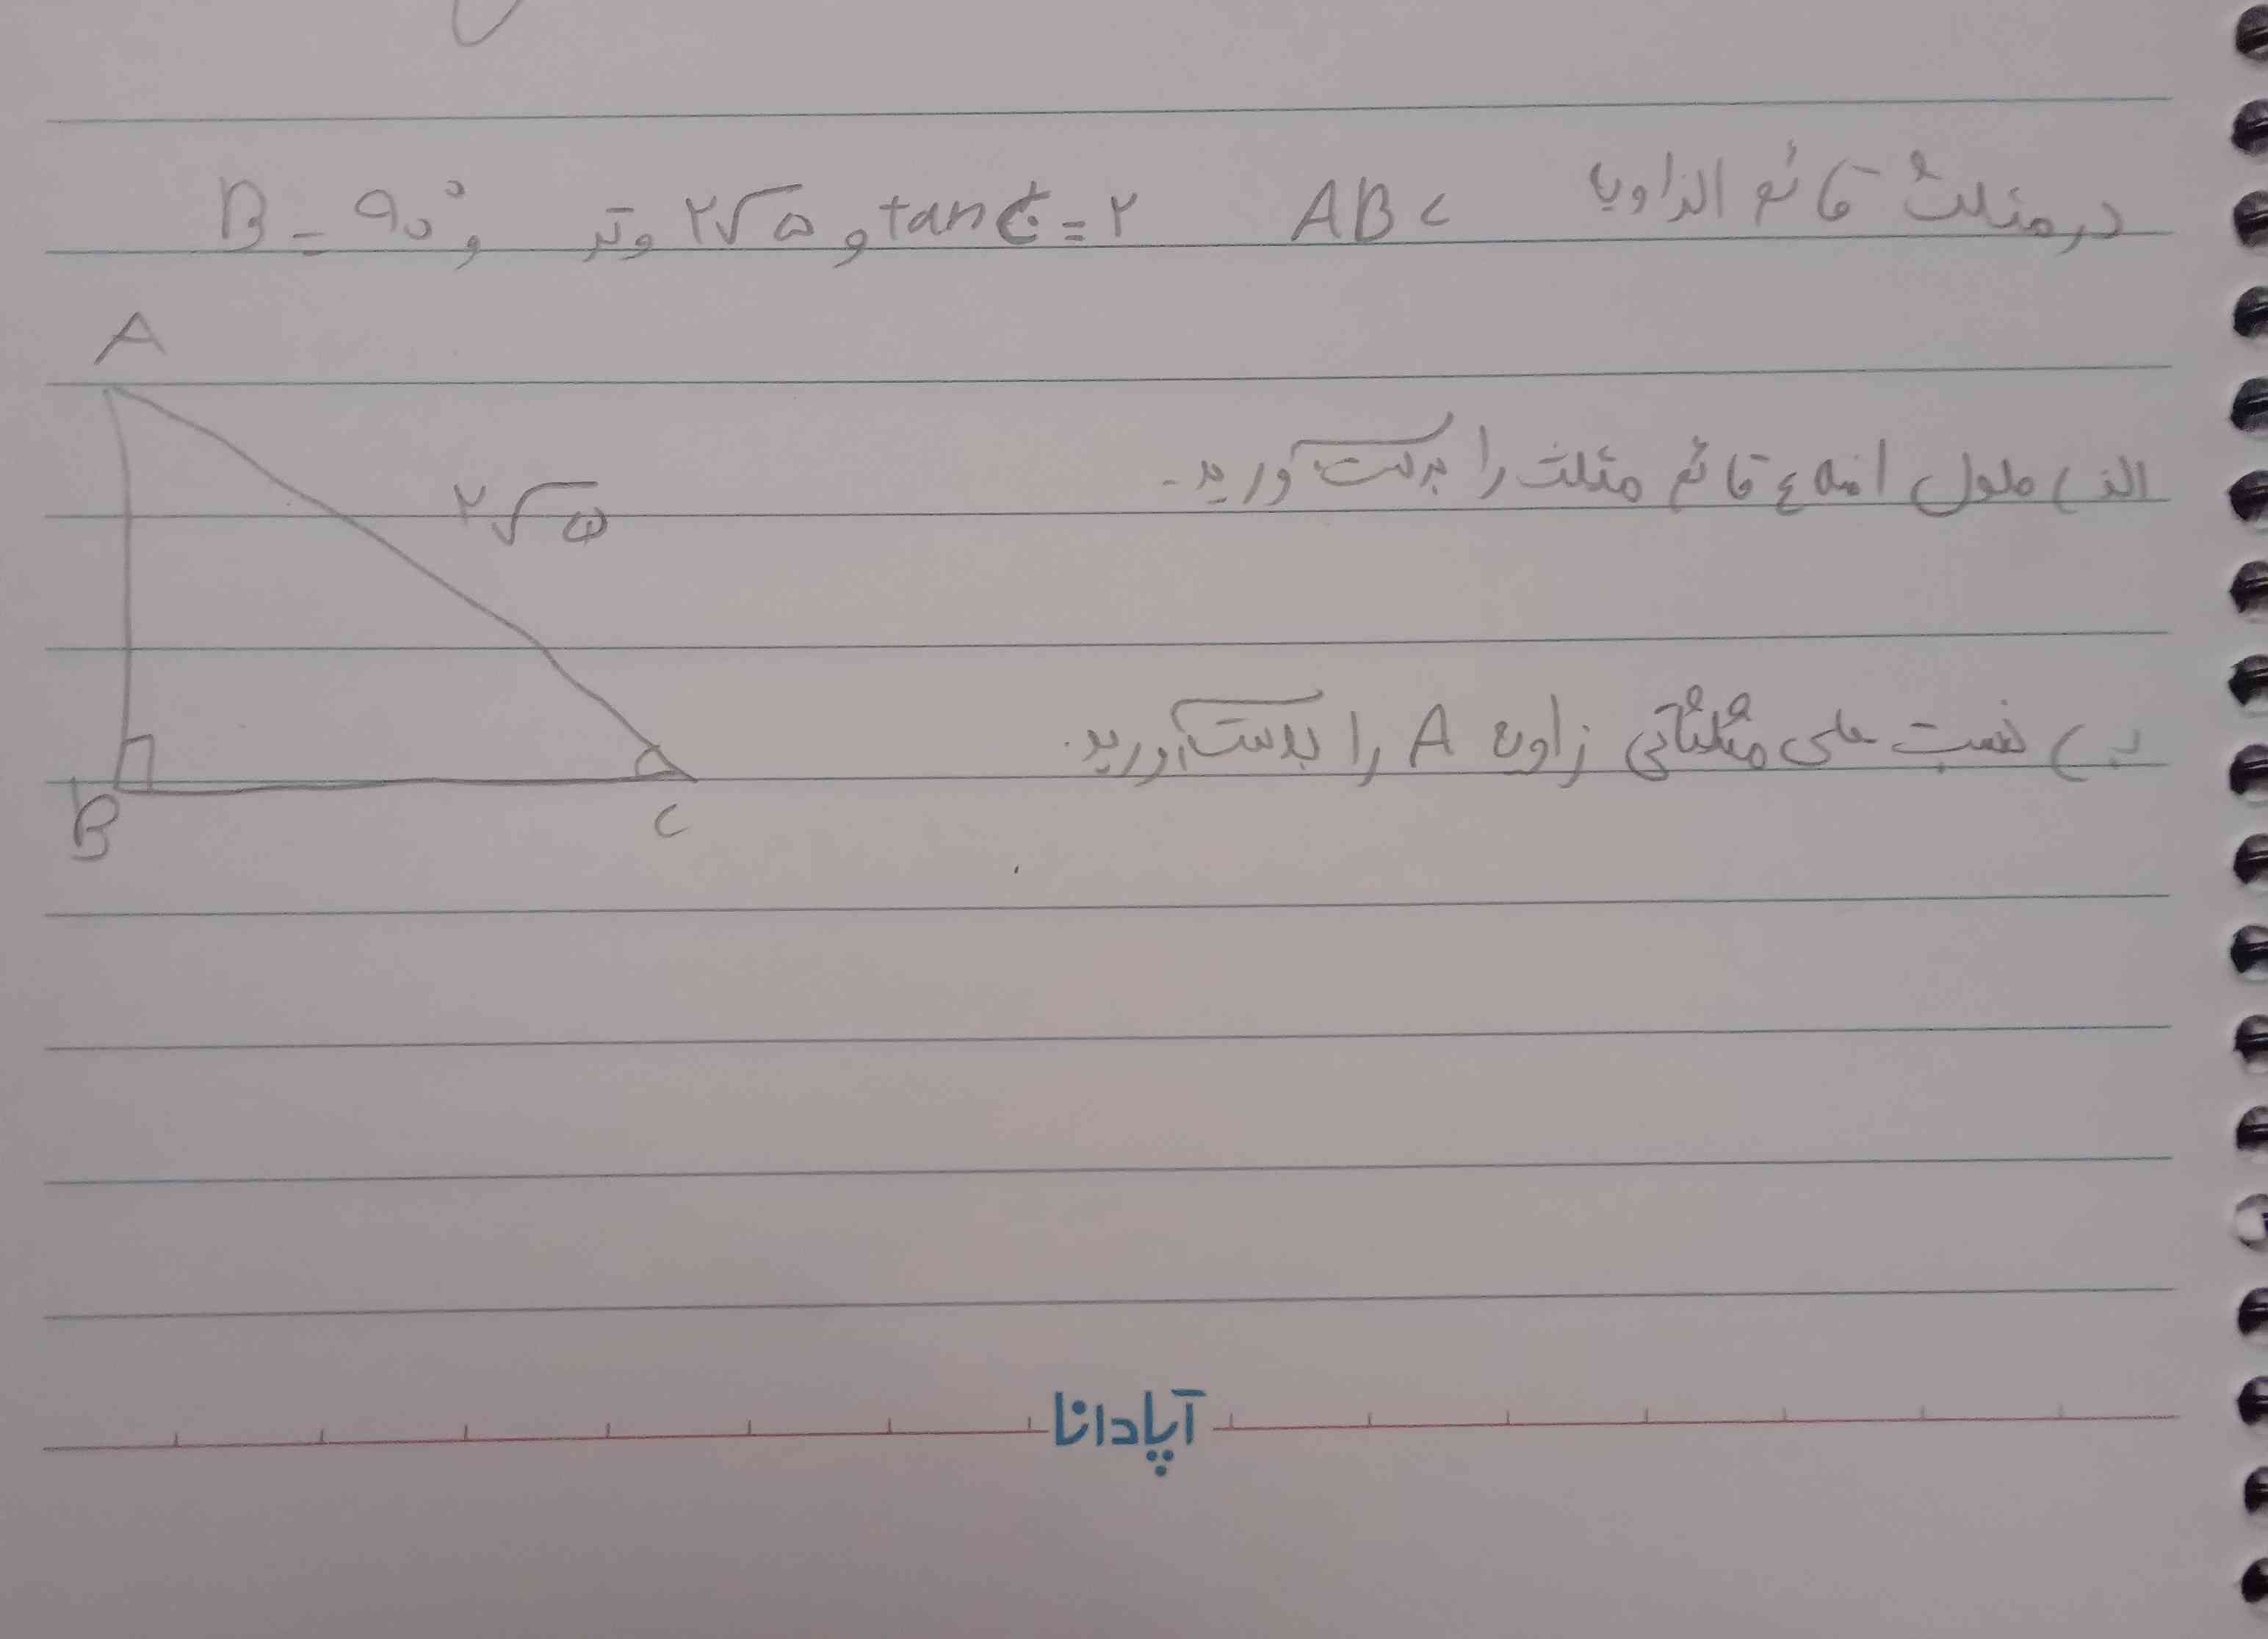 در مثلث قائم الزاویه ABC tan C = ۲ و ۲√۵ وتر و B = ۹۰°
A
الف) طول اضلاع قائم مثلث را بدست آورید.
۲√۵
ب) نسبت های مثلثاتی زاویه A را بدست آورید.
B
C
آپادانا